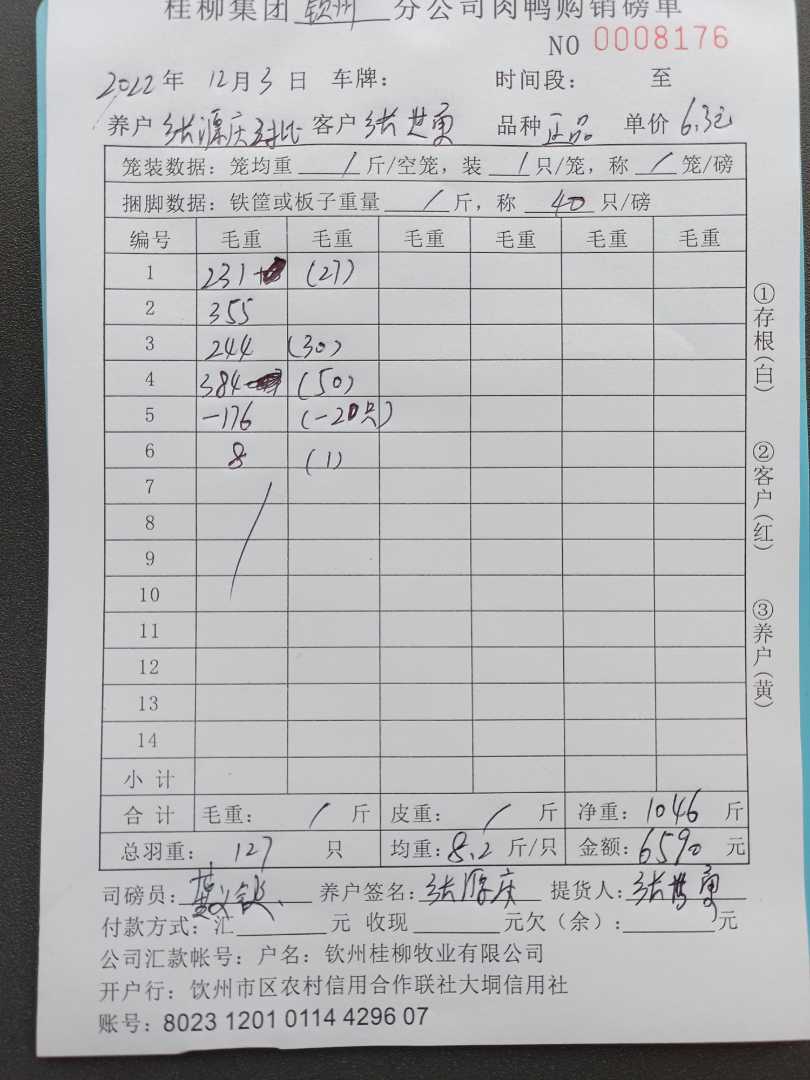 桂柳集团 钦州 分公司肉鸭购销磅单
NO 0008176
2022年 12月3日 车牌： 时间段： 至
养户 张源庆对比 客户 张世勇 品种 正品 单价 6.3元
笼装数据：笼均重 / 斤/空笼，装 / 只/笼，称 / 笼/磅
捆脚数据：铁筐或板子重量 / 斤，称 40 只/磅
编号 毛重 毛重 毛重 毛重 毛重 毛重
1 231 (27)
2 355
3 244 (30)
4 384 (50)
5 -176 (-20只)
6 8 (1)
7
8
9
10
11
12
13
14
小计
合计 毛重： / 斤 皮重： / 斤 净重：1046 斤
总羽重： 127 只 均重：8.2 斤/只 金额：6590 元
司磅员： 养户签名：张源庆 提货人：张世勇
付款方式：汇 元 收现 元欠（余）： 元
公司汇款帐号：户名：钦州桂柳牧业有限公司
开户行：钦州市区农村信用合作联社大垌信用社
账号：8023 1201 0114 4296 07
①存根(白)
②客户(红)
③养户(黄)